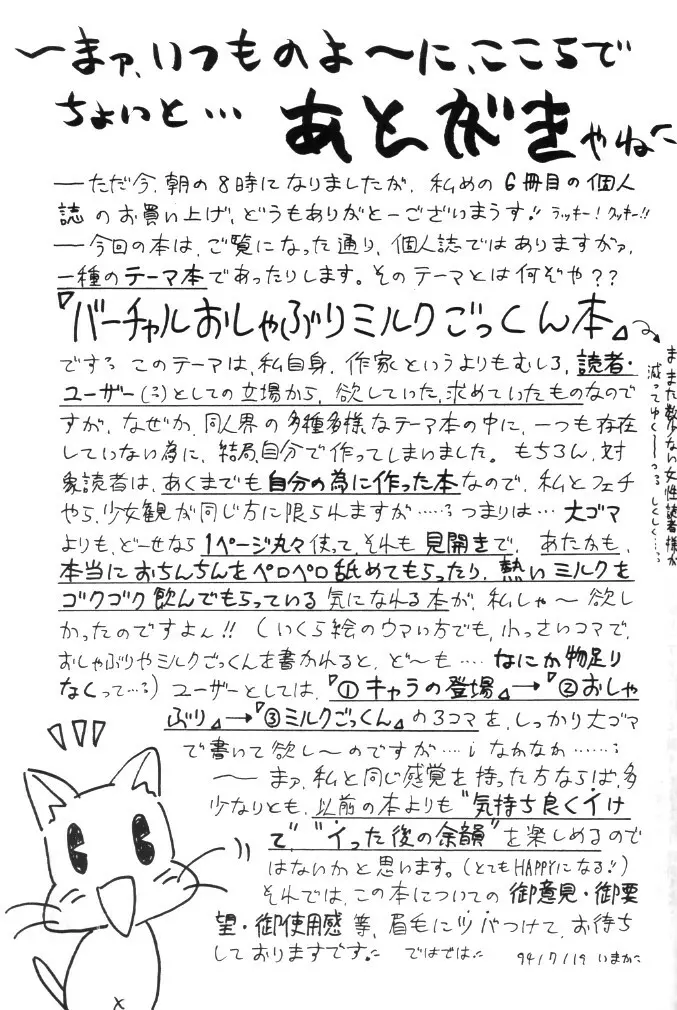 〜まァ、いつものよ〜に、ここらで
ちょいと… あとがきやねに
──ただ今、朝の8時になりましたが、私めの6冊目の個人
誌のお買い上げ、どうもありがとーございまうす!! ラッキー!クッキー!!
──今回の本は、ご覧になった通り、個人誌ではありますがァ、
一種のテーマ本であったりします。そのテーマとは何ぞや??
『バーチャルおしゃぶりミルクごっくん本』
です。このテーマは、私自身、作家というよりもむしろ、読者・
ユーザー(?)としての立場から、欲していた、求めていたものなので
すが、なぜか、同人界の多種多様なテーマ本の中に、一つも存在
していない為に、結局、自分で作ってしまいました。もちろん、対
象読者は、あくまでも自分の為に作った本なので、私とフェチ
やら、少女観が同じ方に限られますが……。つまりは…大ゴマ
よりも、どーせなら1ページ丸々使って、それも見開きで、あたかも、
本当におちんちんをペロペロ舐めてもらったり、熱いミルクを
ゴクゴク飲んでもらっている気になれる本が、私しゃ〜欲し
かったのですよん!!(いくら絵のウマい方でも、小っさいコマで、
おしゃぶりやミルクごっくんを書かれると、ど〜も…なにか物足り
なくって…)ユーザーとしては、『①キャラの登場』→『②おしゃ
ぶり』→『③ミルクごっくん』の3コマを、しっかり大ゴマ
で書いて欲し〜のですが…なかなか……
──まァ、私と同じ感覚を持った方ならば、多
少なりとも、以前の本よりも"気持ち良くイけ
て"、"イった後の余韻"を楽しめるので
はないかと思います。(とてもHAPPYになる!!)
それでは、この本についての御意見・御要
望・御使用感等、眉毛にツバつけて、お待ち
しておりますです。 ではでは 94/7/19
まだまだ数少ない女性読者様が
減ってゆく──っ。しくしく…